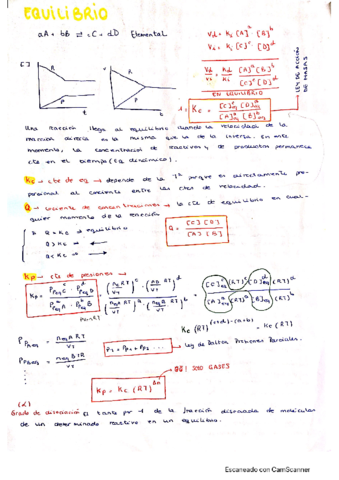 EQUILIBRIO
aA + bB ⇄ cC + dD Elemental
Vd = Kd [A]^a [B]^b
Vi = Ki [C]^c [D]^d
[ ]
R
P
t
v
R
P
t
Vd/Vi = Kd/Ki [A]^a [B]^b / [C]^c [D]^d
EN EQUILIBRIO
1 = Kc = [C]^c eq [D]^d eq / [A]^a eq [B]^b eq
LEY DE ACCIÓN DE MASAS
Una reacción llega al equilibrio cuando la velocidad de la
reacción directa es la misma que la de la inversa. En este
momento, la concentración de reactivos y de productos permanece
cte en el tiempo (eq dinámico).
Kc → cte de eq → depende de la Tª porque es directamente pro-
porcional al cociente entre las ctes de velocidad.
Q → cociente de concentraciones → la cte de equilibrio en cual-
quier momento de la reacción
* Q = Kc → equilibrio
Q > Kc → ←
Q < Kc → →
Q = [C] [D] / [A] [B]
Kp → cte de presiones →
Kp = P^c eq C · P^d eq D / P^a eq A · P^b eq B = (nc RT / VT)^c · (nD RT / VT)^d / (nA RT / VT)^a · (nB RT / VT)^b = [C]^c eq (RT)^c [D]^d eq (RT)^d / [A]^a eq (RT)^a [B]^b eq (RT)^b
Kc (RT)^(c+d)-(a+b) = Kc (RT)
P PAeq = neq A RT / VT
P PBeq = neq B TR / VT
PT = PP1 + PP2 ... → Ley de Dalton Presiones Parciales.
Kp = Kc (RT)^Δn → SOLO GASES
(α)
Grado de disociación El tanto por 1 de la fracción disociada de moléculas
de un determinado reactivo en un equilibrio.
Escaneado con CamScanner